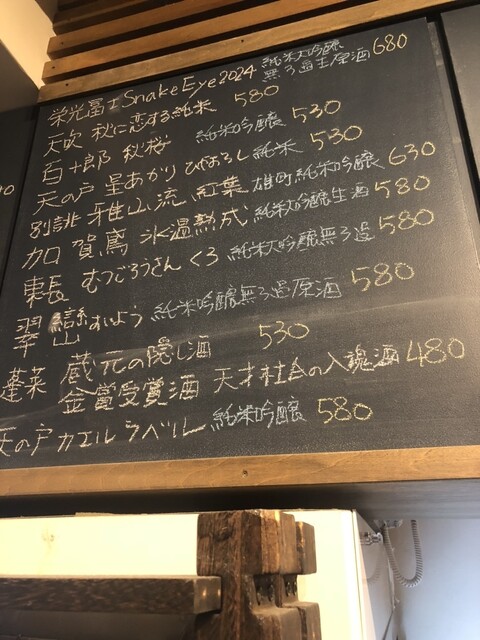 栄光冨士SnakeEye2024 純米大吟醸 無ろ過生原酒 680
天吹 秋に恋する純米 580
百十郎 秋桜 純米吟醸 530
天の戸 星あかり ひやおろし 純米 530
別誂 雅山流 紅葉 雄町純米吟醸 630
加賀鳶 氷温熟成 純米大吟醸生酒 580
東長 むつごろうさん くろ 純米大吟醸無ろ過 580
翠巒 すいらん 純米吟醸無ろ過原酒 580
蓬莱 蔵元の隠し酒 530
金賞受賞酒 天才杜氏の入魂酒 480
天の戸 カエルラベル 純米吟醸 580